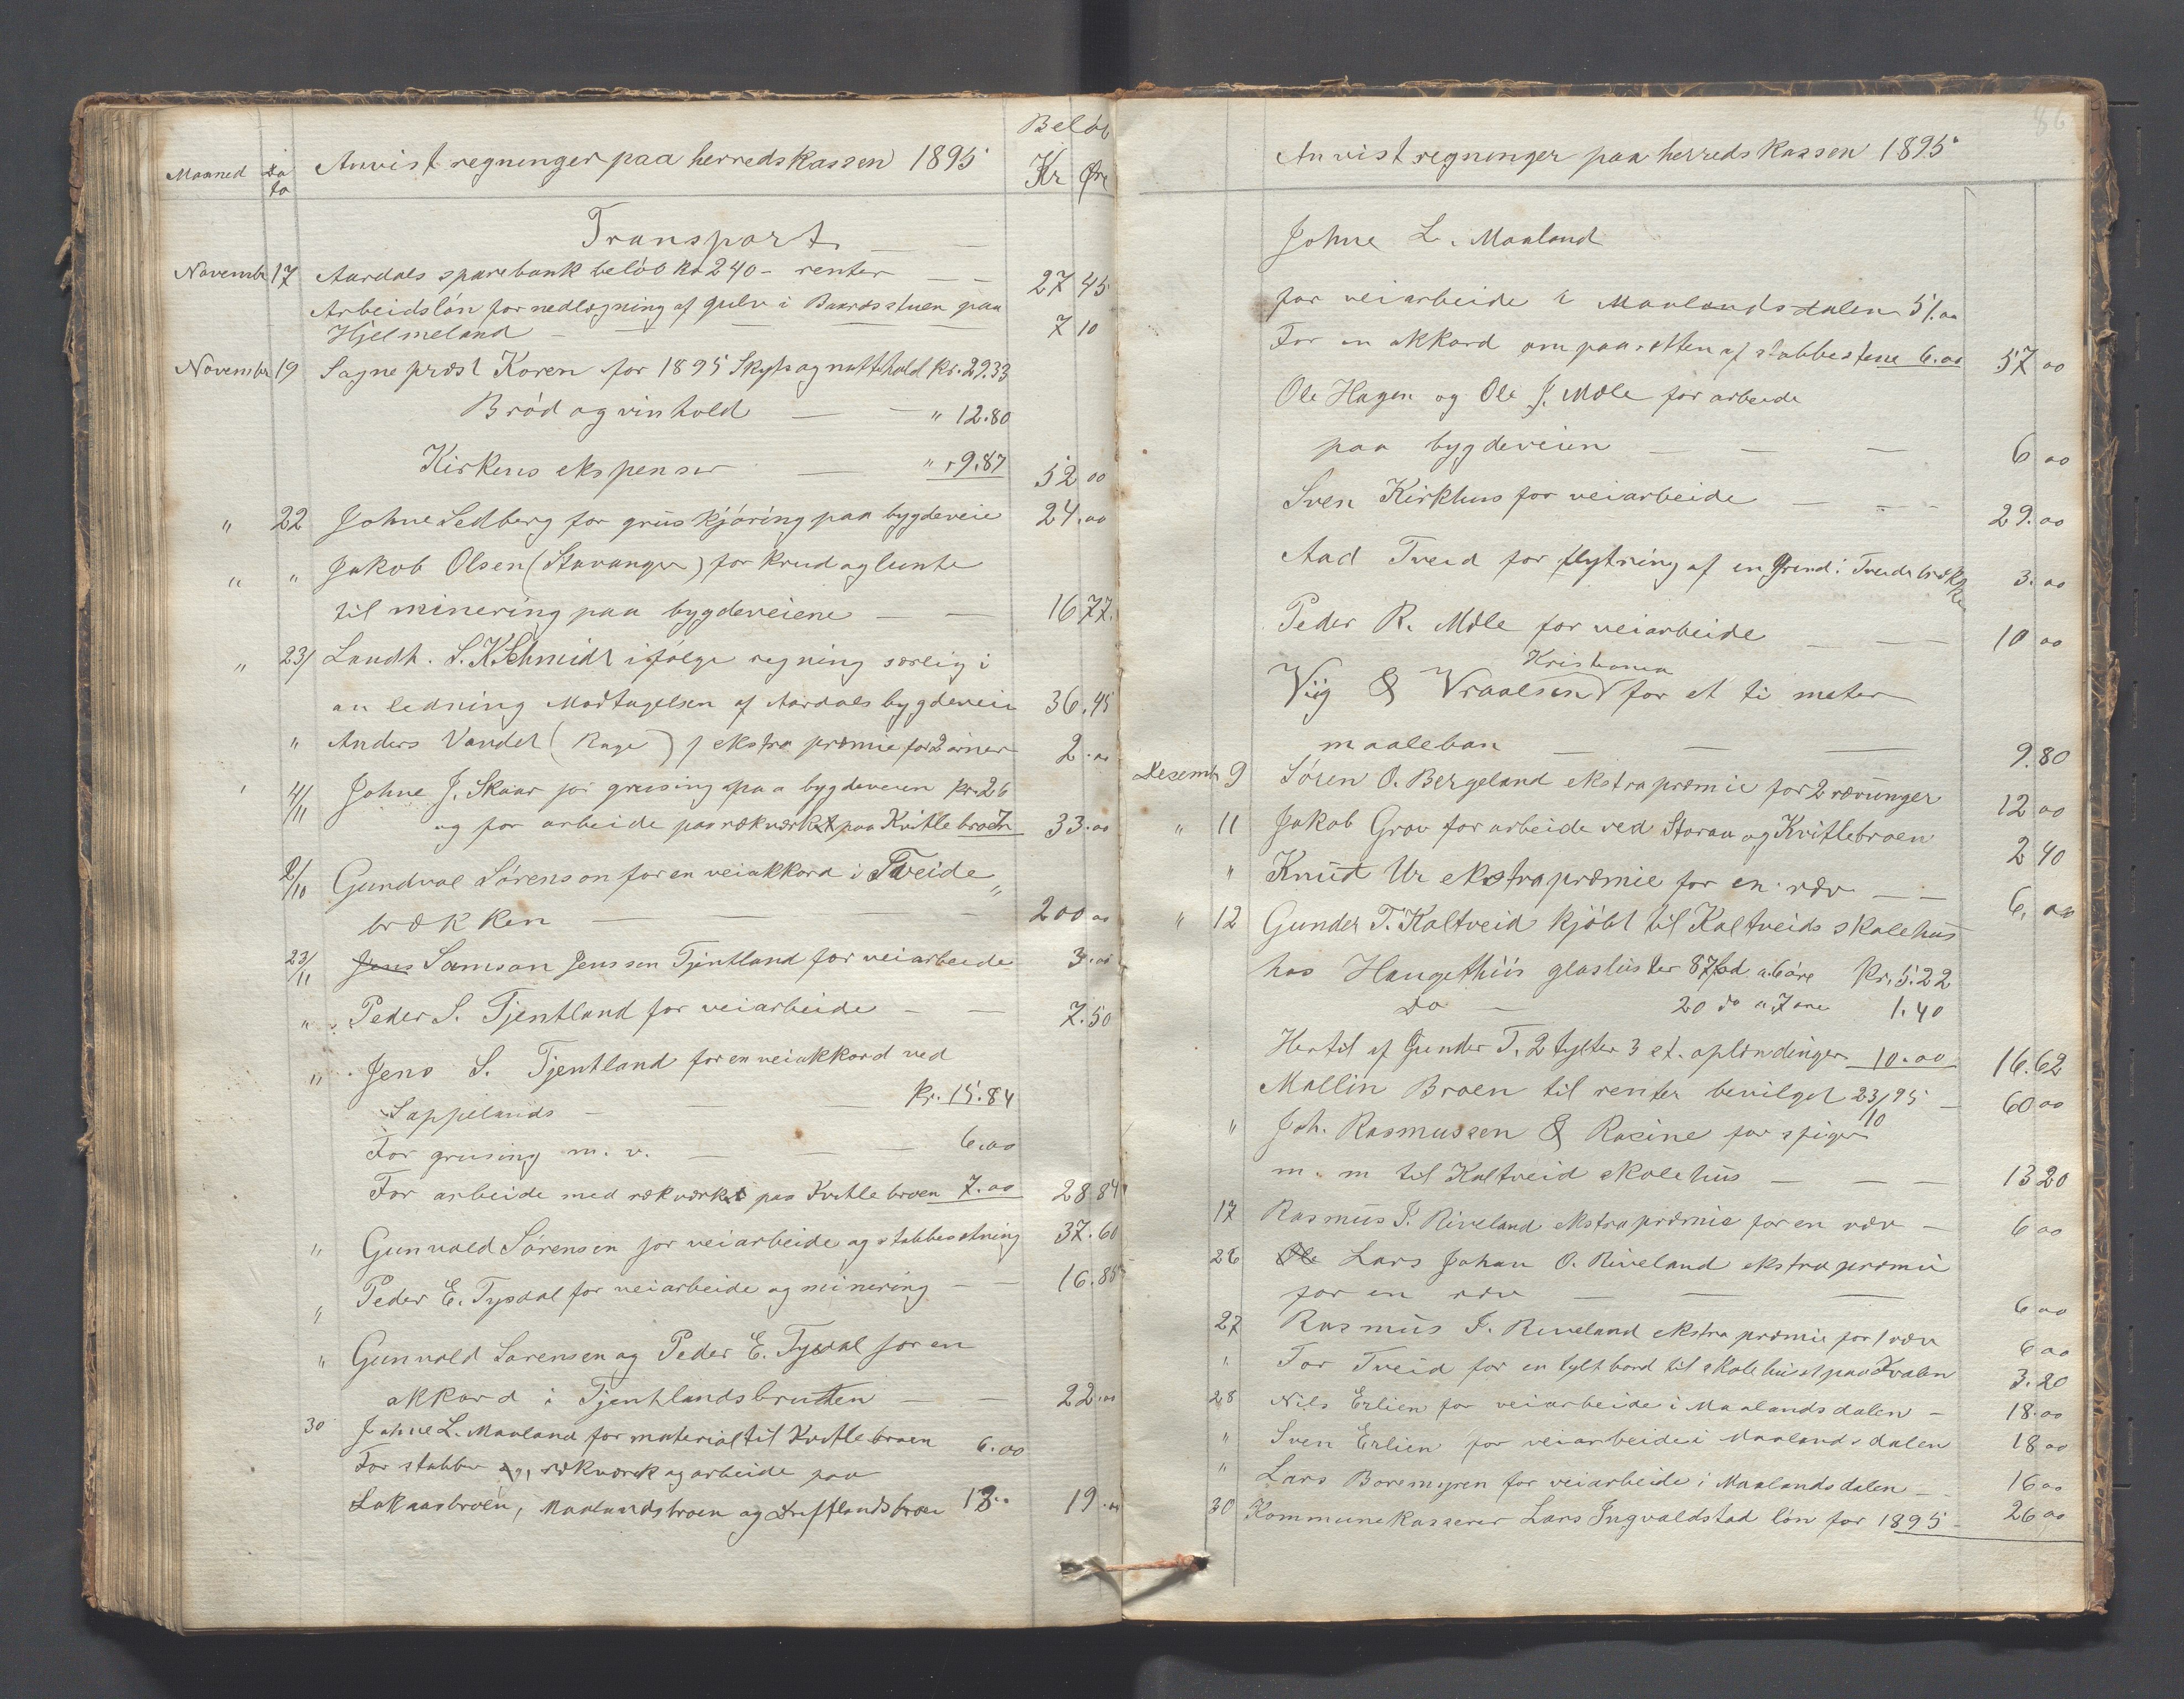 Beløb
Maaned Da to Anvist regninger paa herredskassen 1895 Kr Øre
Transport
Novembr 17 Aardals sparebank beløb kr 240 - renter 27 45
Arbeidsløn for nedlægning af gulv i Baarsstuen paa
Hjelmeland 7 10
November 19 Sogneprest Koren for 1895 Skyds og natthold kr. 29.33
Brød og vinhold " 12.80
Kirkens ekspenser " 9.87 52 00
" 22 Johne Sedberg for grüskjøring paa bygdeveie 24.00
" " Jakob Olsen (Stavanger) for krud og lunte
til minering paa bygdeveiene 16 77.
" 23/ Landh. S. K Schmidt ifølge regning særlig i
anledning Modtagelsen af Aardals bygdeveie 36.45
" Anders Vandel (Rage) f ekstra præmie for 2 ørner 2.00
4/11 Johne J. Skaar for grusing paa bygdeveien kr. 26
og for arbeide paa rækværket paa Kvitlebroen 7 33.00
2/10 Gundval Sørenson for en veiakkord i Tveide
brækken 200 00
23/11 Jens Samson Jensson Tjentland for veiarbeide 3.00
" Peder S. Tjentland for veiarbeide 7.50
" Jens S. Tjentland for en veiakkord ved
Sappelands kr. 15.84
For grusing m. v. 6.00
For arbeide med rækværket paa Kvitlebroen 7.00 28 84
" Gunvald Sørensen for veiarbeide og stabbesetning 37.60
" Peder E. Tysdal for veiarbeide og minering 16.88
" Gunvald Sørensen og Peder E. Tysdal for en
akkord i Tjentlandsbrutten 22.00
30 Johne L. Maaland for material til Kvitlebroen 6.00
For stabber og, rækværk og arbeide paa
Lakaasbroen, Maalandsbroen og Driftlandsbroen 13.. 19.00
86
Anvist regninger paa herredskassen 1895
Johne L. Maaland
for veiarbeide i Maalandsdalen 51.00
For en akkord om paasetten af stabbestene 6.00 57 00
Ole Hagen og Ole J. Mæle for arbeide
paa bygdeveien 6 00
Sven Kirkhus for veiarbeide 29.00
Aad Tveid for flytning af en Grind i Tveidebrække 3.00
Peder R. Mæle for veiarbeide 10 00
Kristiania
Viig & Vraalsen for et ti meter
maaleban 9.80
Desembr 9 Søren O. Bergeland ekstrapræmie for 2 rævunger 12 00
" 11 Jakob Grov for arbeide ved Storaa og Kvitlebroen 2 40
" Knüd Ur ekstrapræmie for en ræv 6.00
" 12 Gunder T. Kaltveid kjøbt til Kaltveids skolehüs
hos Haugethüs glaslister 87 fod a 6 øre Kr. 5.22
Do 20 do a 7 øre 1.40
Hertil af Gunder T. 2 tylter 3 et. oplændinger 10.00 16.62
Mallin Broen til renter bevilget 23/10 95 60 00
" Joh. Rasmussen & Racine for spiger
m. m til Kaltveid skolehüs 13 20
17 Rasmüs I. Riveland ekstrapræmie for en ræv 6 00
26 Ole Lars Johan O. Riveland ekstrapræmie
for en ræv 6 00
27 Rasmüs I. Riveland ekstra præmie for 1 ræv 6 00
" Tor Tveid for en tylt bord til skolehuset paa Kvalen 3.20
28 Nils Erlien for veiarbeide i Maalandsdalen 18.00
" Sven Erlien for veiarbeide i Maalandsdalen 18 00
" Lars Boremyren for veiarbeide i Maalandsdalen 16 00
30 Kommunekasserer Lars Ingvaldstad løn for 1895 26 00